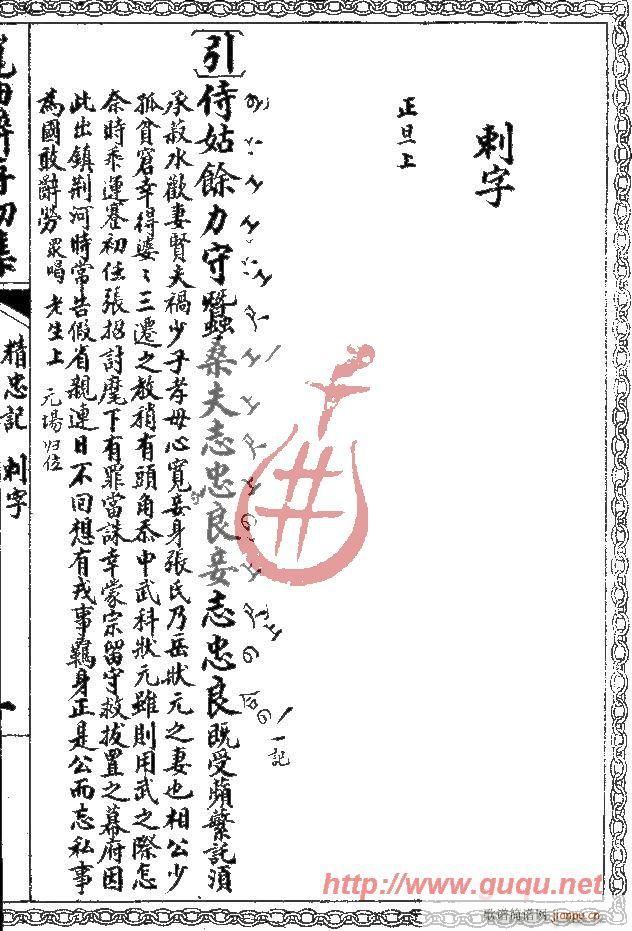 刺字
正旦上
引 侍姑餘力守蠶桑夫志忠良妾志忠良既受蘋蘩託須
一記
承菽水歡妻賢夫禍少子孝母心寬妾身張氏乃岳狀元之妻也相公少
孤貧窘幸得婆〻三遷之教稍有頭角忝中武科狀元雖則用武之際怎
奈時乖運蹇初任張招討麾下有罪當誅幸蒙宗留守救拔置之幕府因
此出鎮荆河時常告假省親連日不回想有戎事羈身正是公而忘私事
為國敢辭勞 眾喝 老生上 元場归位
精忠記 刺字
一
http://www.guqu.net
歌谱简谱网 jianpu.cn